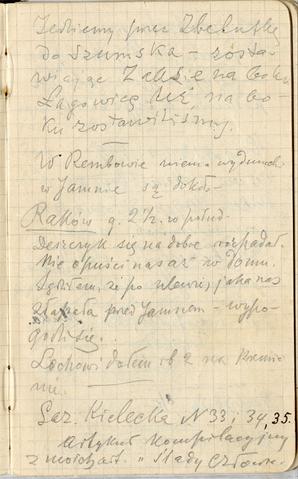 Jedziemy przez Zbelutkę
do Szumska – zosta-
wiając Zalesie na boku
Łagowicę też na bo-
ku zostawiliśmy.
W Rembowie niema wydmuch
w Jamnie są dokoł-
Raków g. 2½ w połud.
Deszczyk się na dobre rozpadał.
Nie opuści nas aż w domu.
Sądziłem, że po ulewie, jaka nas
złapała przed Jamnem – wypo-
godzi się.
dołem 2 na Krzemie
Gaz. Kielecka N 33, 34, 35.
Artykuł kompilacyjny
z moich art. "Ślady człowie-